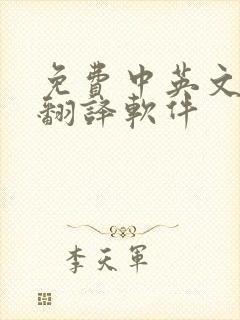 免費中英文
翻譯軟件
李天軍